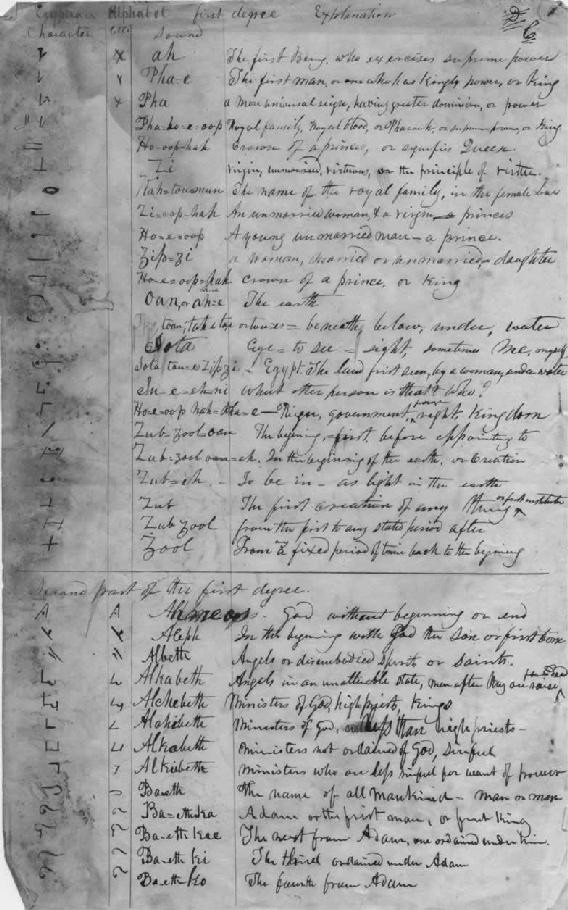 Egyptian Alphabet first degree Explanation
Character sound
ah The first Being who exercises supreme power
Pha-e The first man, or one who has Kingly power, or King
Pha a more universal reign, having greater dominion, or power
Pha-ho-e-oop Royal family, royal blood, or Pharaoh, or supreme power, or King
Ho-oop-hah Crown of a princes, or signifies Queen
Zi virgin, unmarried, virtuous, or the principle of virtue
Kah-tou-mun The name of the royal family, in the female line
Zi-oop-hah An unmarried woman, & a virgin - a princes
Ho-e-oop A young unmarried man - a prince.
Zip-zi a woman, married or unmarried - daughter
Ho-e-oop-hah crown of a prince, or King
Oan, or ah-e The earth
beneath, below, under, water
Iota Eye - to see - sight, sometimes me, myself
Iota tou-es Zip-zi - Egypt The land first seen, by a woman, under water
In-e-eh-ni what other person is that? Who?
Ho-e-oop hah-Pha-e - Reign, government power, right, Kingdom
Zub-zool-oan The begining, first, before appointing to
Zub-zool-oan-eh. In the begining of the earth, or Creation
Zub-eh - To be in - as light in the earth
Zub The first creation of any thing or first institution
Zub Zool From the first to any stated period after
Zool From a fixed period of time back to the begining
Second part of the first degree.
A A Ahmeos. God without beginning or end
Aleph In the begining with God the son or first born
Albeth Angels or disembodied spirits or saints.
Alkabeth Angels in an unalterable state, men after they are raised from the dead
Alchebeth Ministers of God, high priests, Kings
Alchibeth Ministers of God, less than high priests -
Alkabeth ministers not ordained of God, sinful
Alkibeth ministers who are less sinful for want of power
Baeth The name of all mankind - man or men
Ba-eth-ka Adam or the first man, or first King
Ba-eth kee The next from Adam, one ordained under him.
Ba-eth ki The third ordained under Adam
Ba-eth ko The fourth from Adam